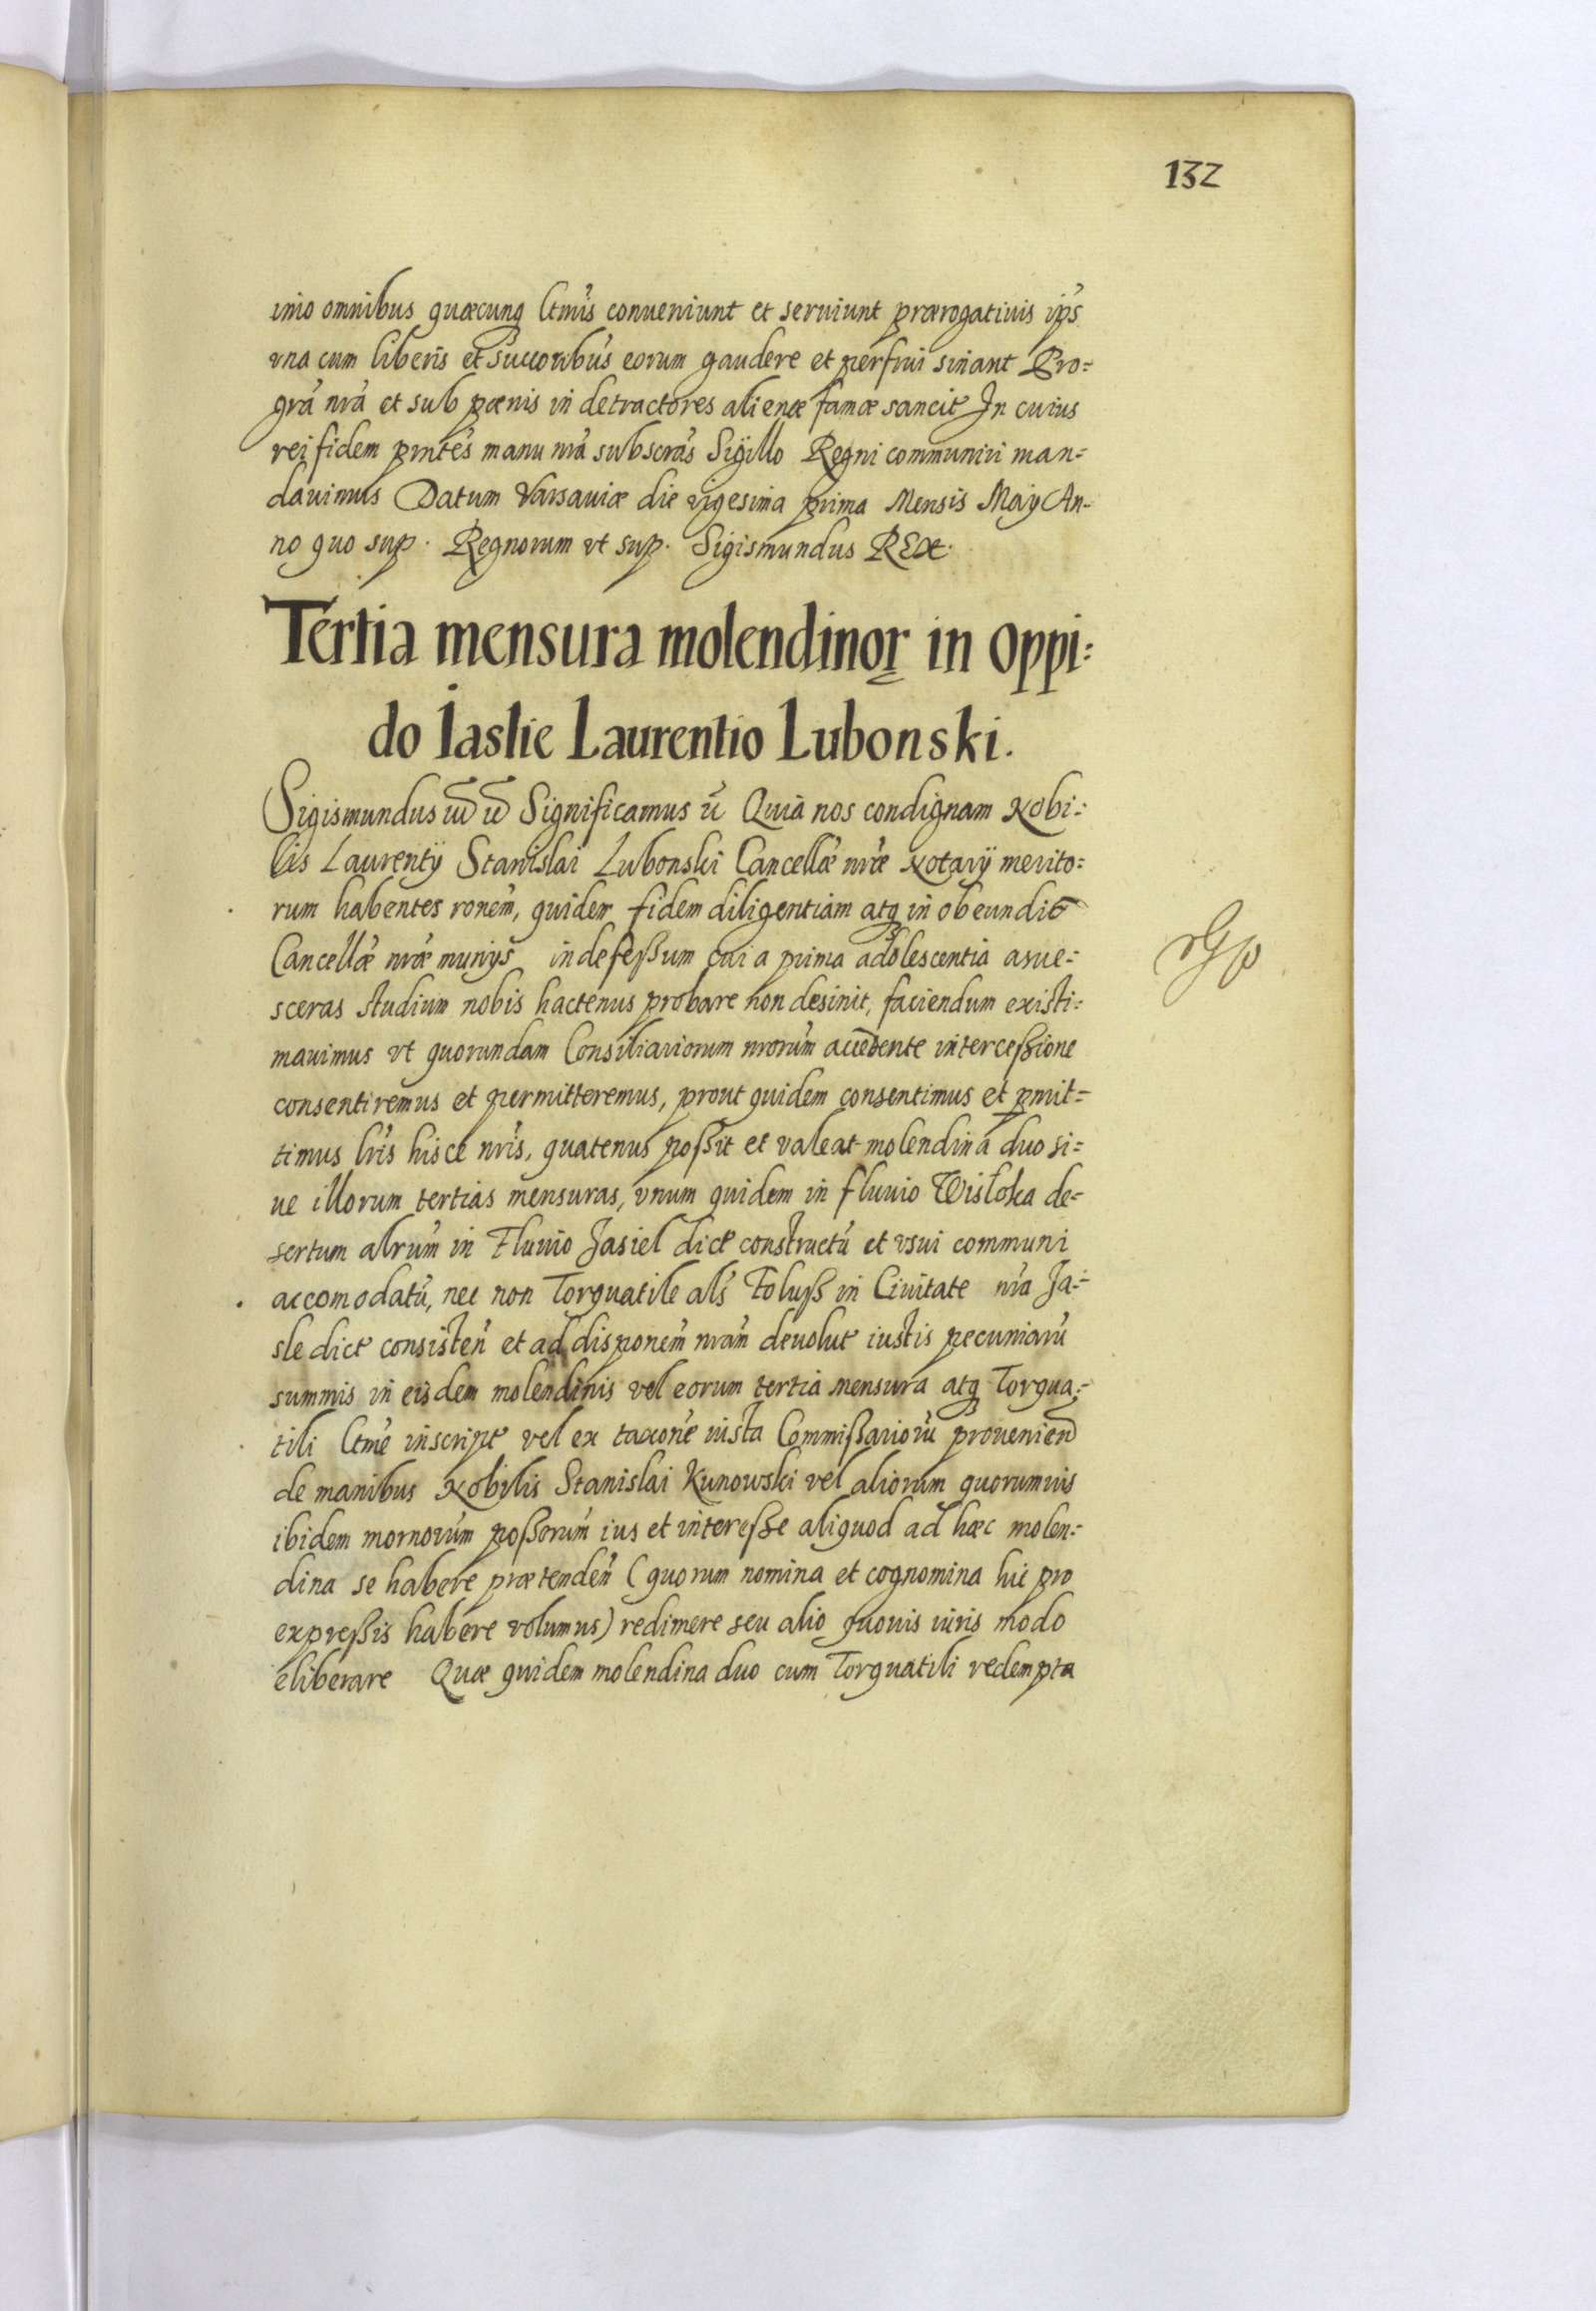 132
imo omnibus quæcunq ltmis conueniunt et seruiunt prærogatiuis ips
vna cum liberis et succoribus eorum gaudere et perfrui sinant Pro=
gra nra et sub pœnis in detractores alienæ famæ sancit In cuius
rei fidem pntes manu nra subscras Sigillo Regni communiri man=
dauimus Datum Varsauiæ die vigesima prima Mensis Maij An-
no quo sup. Regnorum vt sup. Sigismundus REX.
Tertia mensura molendinoꝝ in oppi:
do Iaslie Laurentio Lubonski.
Sigismundus Significamus Quia nos condignam Nobi:
lis Laurentij Stanislai Lubonski Cancellæ nræ Notarij merito:
rum habentes ronem, quidem fidem diligentiam atq in obeundis
Cancellæ nræ munijs indefeßum cui a prima adolescentia asue:
sceras studium nobis hactenus probare non desinit, faciendum existi:
mauimus vt quorundam Consiliariorum nrorum accedente interceßione
consentiremus et permitteremus, prout quidem consentimus et pmit=
timus lris hisce nris, quatenus poßit et valeat molendina duo si=
ue illorum tertias mensuras, vnum quidem in fluuio Wisłoka de=
sertum alrum in Fluuio Jasiel dict constructu et vsui communi
accomodatu, nec non Torquatile als Foluß in Ciuitate nra Ja:
sle dict consisten et ad disponem nram deuolut iustis pecuniaru
summis in eisdem molendinis vel eorum tertia mensura atq Torqua:
tili ltme inscript vel ex taxone iusta Commißarioru prouenien
de manibus Nobilis Stanislai Kunowski vel aliorum quorumuis
ibidem mornorum poßorum ius et intereße aliquod ad hæc molen:
dina se habere prætenden (quorum nomina et cognomina hic pro
expreßis habere volumus) redimere seu alio quouis iuris modo
eliberare Quæ quidem molendina duo cum Torquatili redempta